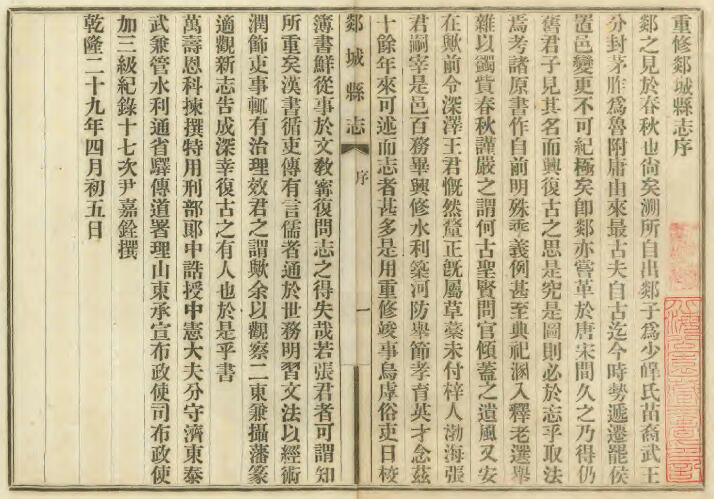 重修郯城縣志序
郯之見於春秋也尙矣溯所自出郯子爲少皡氏苗裔武王
分封茅胙爲魯附庸由來最古夫自古迄今時勢遞遷罷侯
置邑變更不可紀極矣卽郯亦嘗革於唐宋間久之乃得仍
舊君子見其名而興復古之思是究是圖則必於志乎取法
焉考諸原書作自前明殊乖義例甚至典祀溷入釋老選舉
雜以蠲貲春秋謹嚴之謂何古聖賢問官傾蓋之遺風又安
在歟前令深澤王君慨然釐正旣屬草藁未付梓人渤海張
君嗣宰是邑百務畢興修水利築河防舉節孝育英才念茲
十餘年來可述而志者甚多是用重修竣事烏虖俗吏日棱
郯城縣志
序
一
簿書鮮從事於文敎寗復問志之得失哉若張君者可謂知
所重矣漢書循吏傳有言儒者通於世務明習文法以經術
潤飾吏事輒有治理效君之謂歟余以觀察二東兼攝藩篆
適觀新志告成深幸復古之有人也於是乎書
萬壽恩科揀撰特用刑部郞中誥授中憲大夫分守濟東泰
武兼管水利通省驛傳道署理山東承宣布政使司布政使
加三級紀錄十七次尹嘉銓撰
乾隆二十九年四月初五日